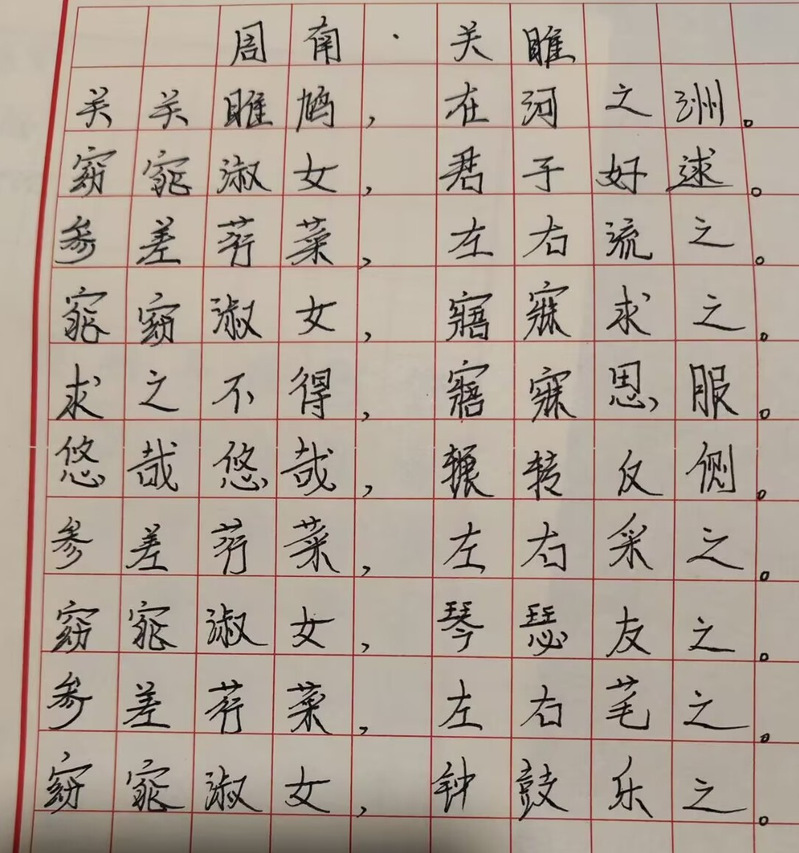 周南·关雎
关关雎鸠，在河之洲。
窈窕淑女，君子好逑。
参差荇菜，左右流之。
窕窈淑女，寤寐求之。
求之不得，寤寐思服。
悠哉悠哉，辗转反侧。
参差荇菜，左右采之。
窈窕淑女，琴瑟友之。
参差荇菜，左右芼之。
窈窕淑女，钟鼓乐之。